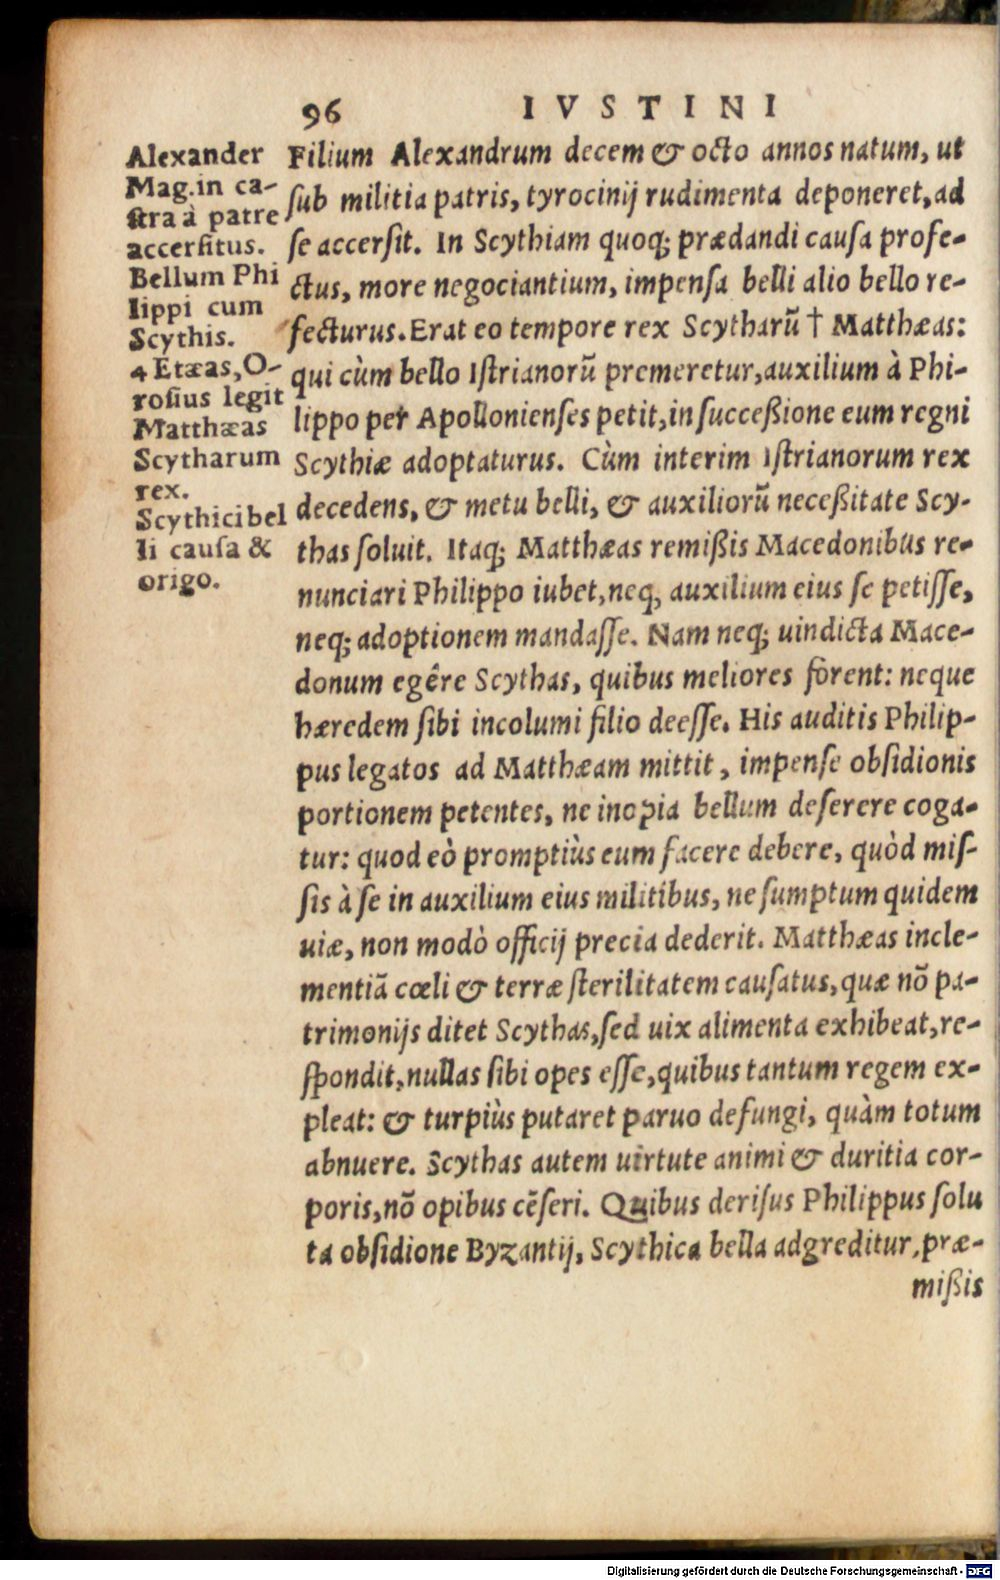 96 IVSTINI
Alexander
Mag. in ca-
ſtra à patre
accerſitus.
Bellum Phi
lippi cum
Scythis.
4 Etæas, O-
roſius legit
Matthæas
Scytharum
rex.
Scythici bel
li cauſa &
origo.
Filium Alexandrum decem & octo annos natum, ut
ſub militia patris, tyrocinij rudimenta deponeret, ad
ſe accerſit. In Scythiam quoq; prædandi cauſa profe-
ctus, more negociantium, impenſa belli alio bello re-
fecturus. Erat eo tempore rex Scytharũ † Matthæas:
qui cùm bello Iſtrianorũ premeretur, auxilium à Phi-
lippo per Apollonienſes petit, in ſucceßione eum regni
Scythiæ adoptaturus. Cùm interim Iſtrianorum rex
decedens, & metu belli, & auxiliorũ neceßitate Scy-
thas ſoluit. Itaq; Matthæas remißis Macedonibus re-
nunciari Philippo iubet, neq; auxilium eius ſe petiſſe,
neq; adoptionem mandaſſe. Nam neq; uindicta Mace-
donum egêre Scythas, quibus meliores forent: neque
hæredem ſibi incolumi filio deeſſe. His auditis Philip-
pus legatos ad Matthæam mittit, impenſe obſidionis
portionem petentes, ne inopia bellum deſerere coga-
tur: quod eò promptiùs eum facere debere, quòd miſ-
ſis à ſe in auxilium eius militibus, ne ſumptum quidem
uiæ, non modò officij precia dederit. Matthæas incle-
mentiã cœli & terræ ſterilitatem cauſatus, quæ nõ pa-
trimonijs ditet Scythas, ſed uix alimenta exhibeat, re-
ſpondit, nullas ſibi opes eſſe, quibus tantum regem ex-
pleat: & turpiùs putaret paruo defungi, quàm totum
abnuere. Scythas autem uirtute animi & duritia cor-
poris, nõ opibus cẽſeri. Quibus deriſus Philippus ſolu
ta obſidione Byzantij, Scythica bella adgreditur, præ-
mißis
Digitalisierung gefördert durch die Deutsche Forschungsgemeinschaft - DFG